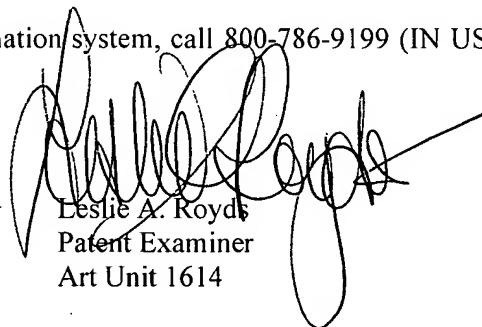 nation system, call 800-786-9199 (IN US
Leslie A. Royds
Patent Examiner
Art Unit 1614